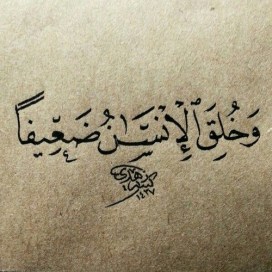 وَخُلِقَ ٱلْإِنْسَٰنُ ضَعِيفًا